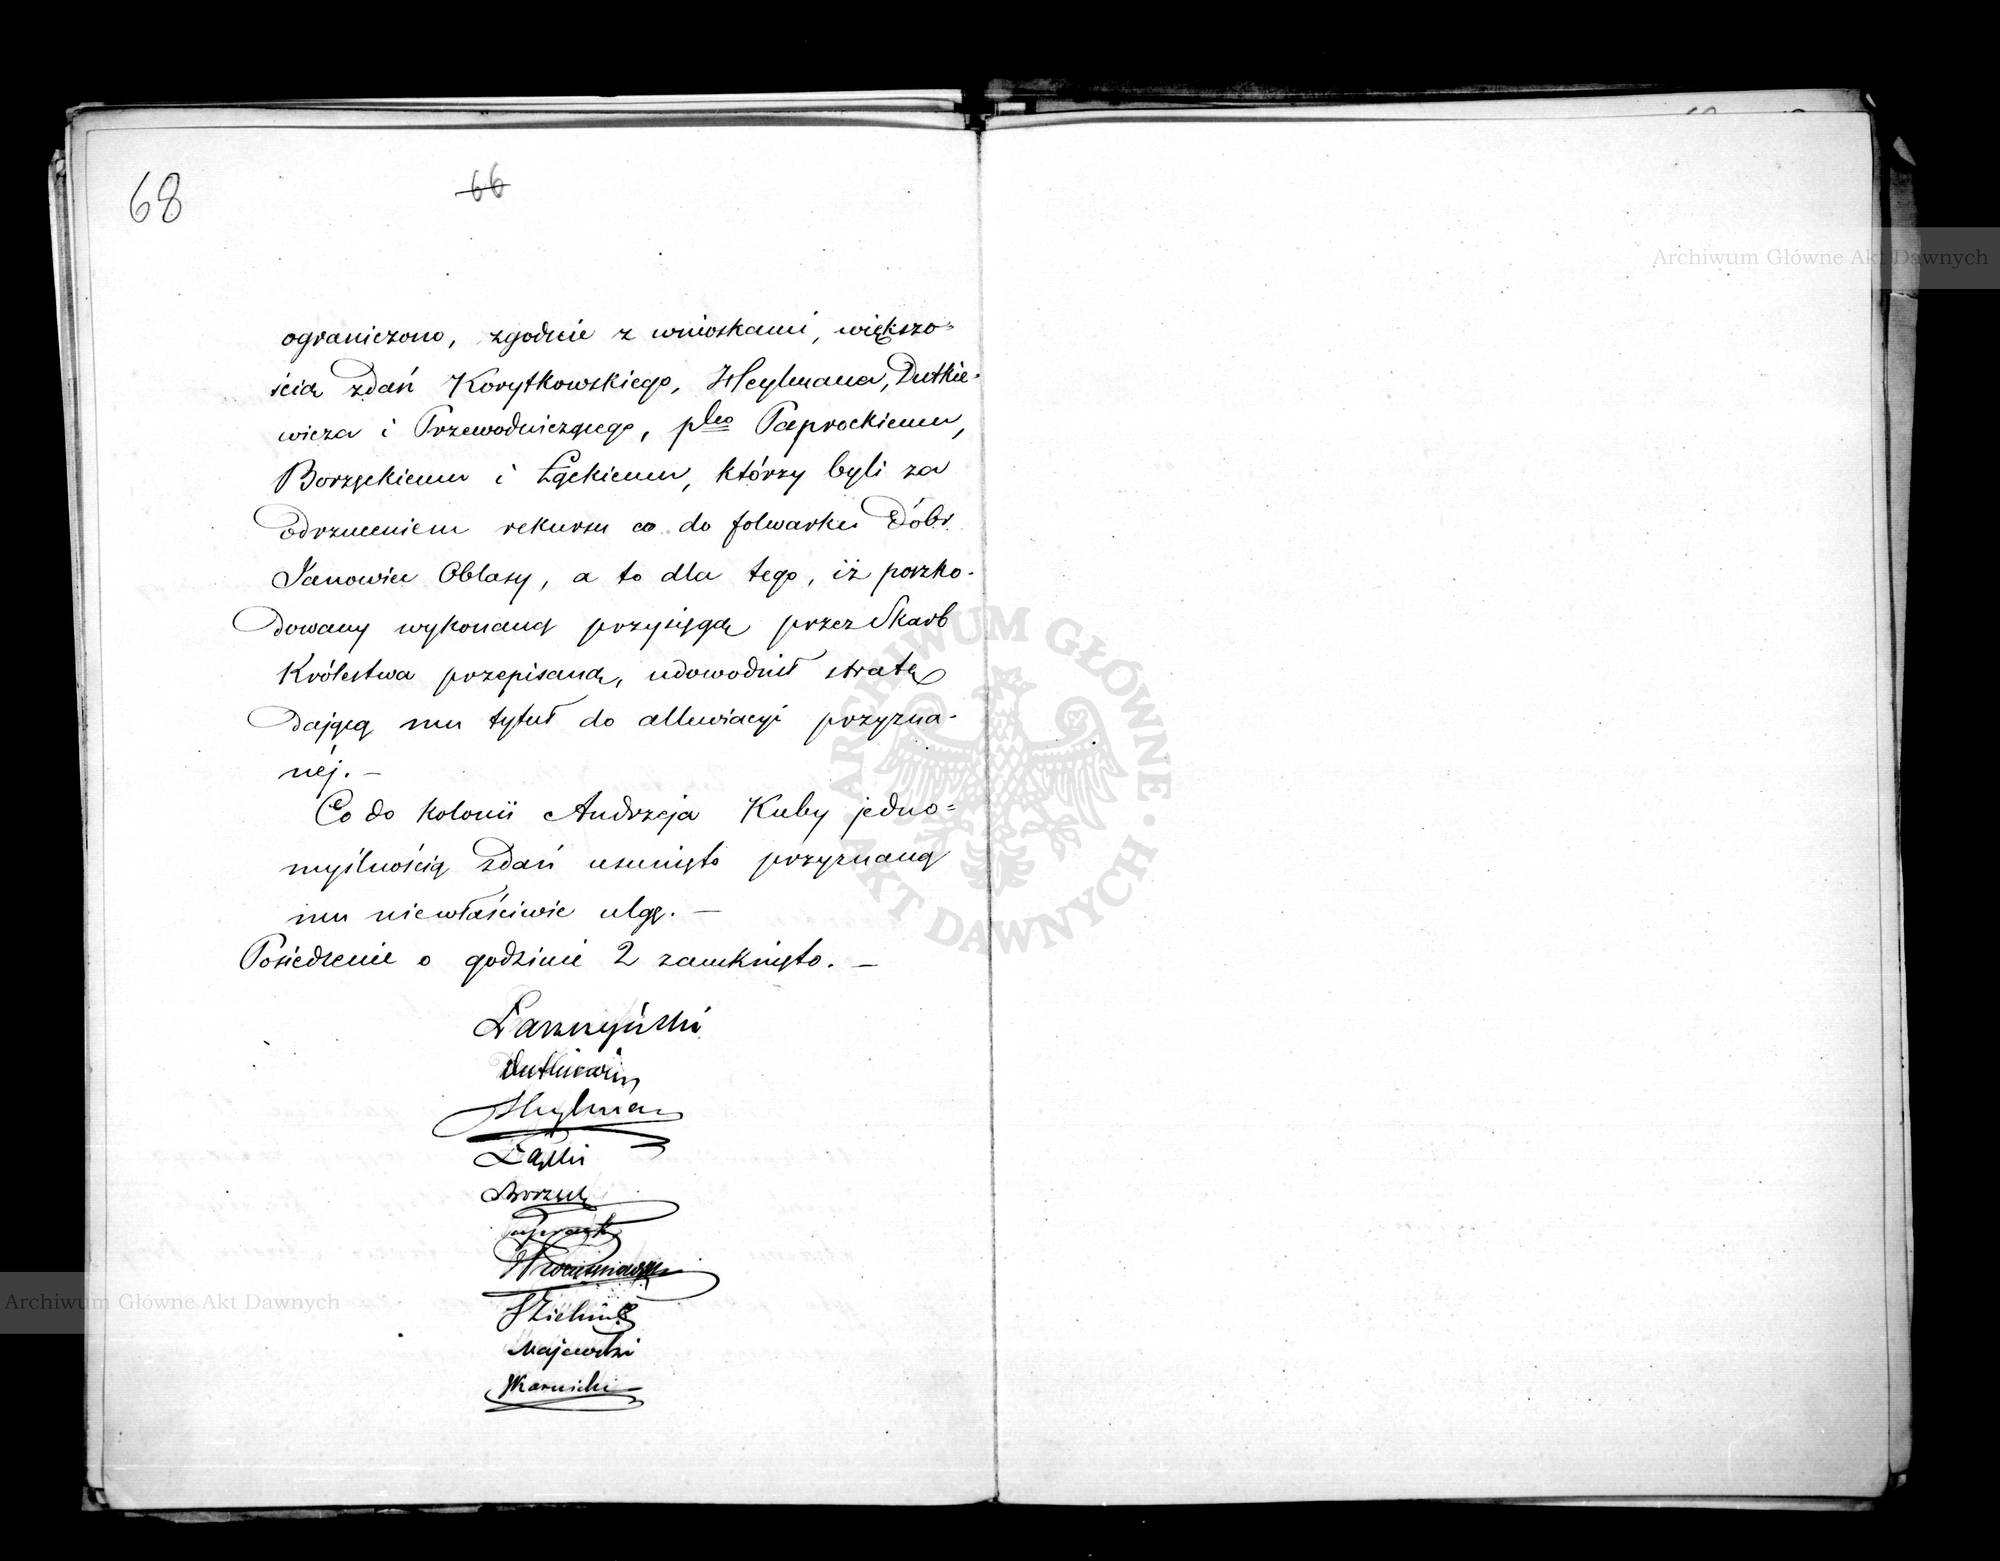 68
66
ograniczono, zgodnie z wnioskami, większo=
ścią zdań Korytkowskiego, Heylmana, Dutkie-
wicza i Przewodniczącego, pko Paprockiemu,
Borzęckiemu i Łąckiemu, którzy byli za
odrzuceniem rekursu co do folwarku Dóbr
Janowiec Oblasy, a to dla tego, iż poszko-
dowany wykonaną przysięgą przez Skarb
Królestwa przepisaną, udowodnił stratę
dającą mu tytuł do allewiacyi przyzna-
néj. —
Co do kolonii Andrzeja Kuby jedno=
myślnością zdań usunięto przyznaną
mu niewłaściwie ulgę. —
Posiedzenie o godzinie 2 zamknięto. —
Łaszczyński
Dutkiewicz
Heylman
Łącki
Borzęcki
Paprocki
Zieliński
Majewski
JKarnicki
Archiwum Główne Akt Dawnych
ARCHIWUM GŁÓWNE AKT DAWNYCH
Archiwum Główne Akt Dawnych